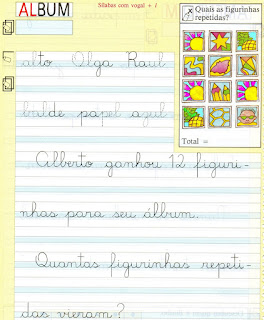 ALBUM
Sílabas com vogal + l
Quais as figurinhas
repetidas?
alto Olga Raul
balde papel azul
Alberto ganhou 12 figuri-
nhas para seu álbum.
Quantas figurinhas repeti-
das vieram?
Total =